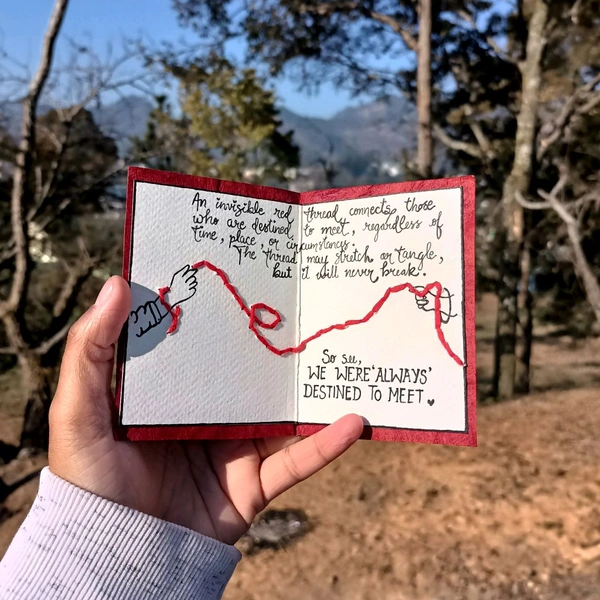 An invisible red thread connects those
who are destined to meet, regardless of
time, place, or circumstances.
The thread may stretch or tangle,
but it will never break.
So see,
WE WERE 'ALWAYS'
DESTINED TO MEET